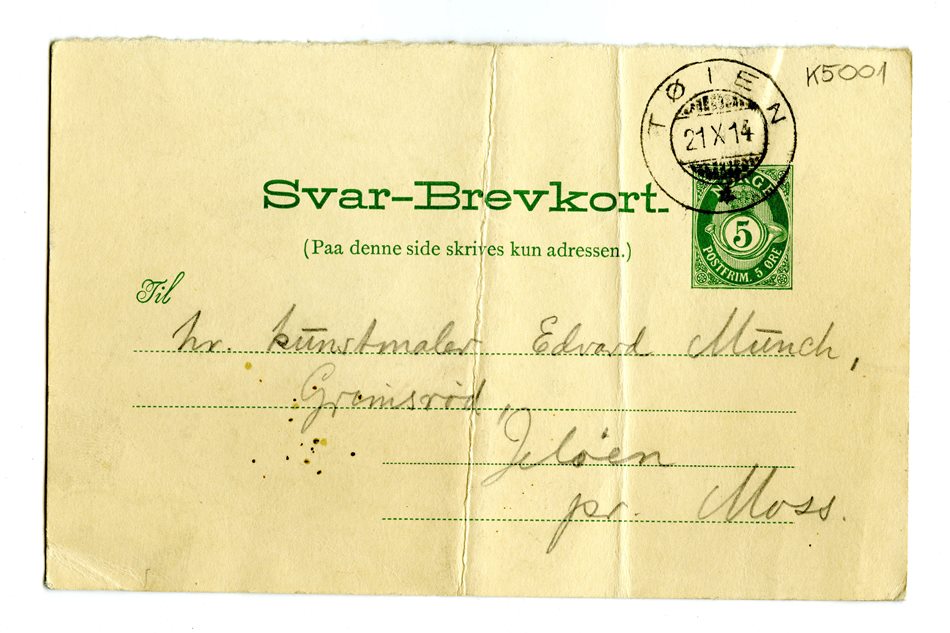 K5001
TØIEN
21 X 14
Svar-Brevkort.
NORGE
5
POSTFRIM. 5 ØRE
(Paa denne side skrives kun adressen.)
Til
hr. kunstmaler Edvard Munch,
Grimsrød,
Jeløen
pr. Moss.